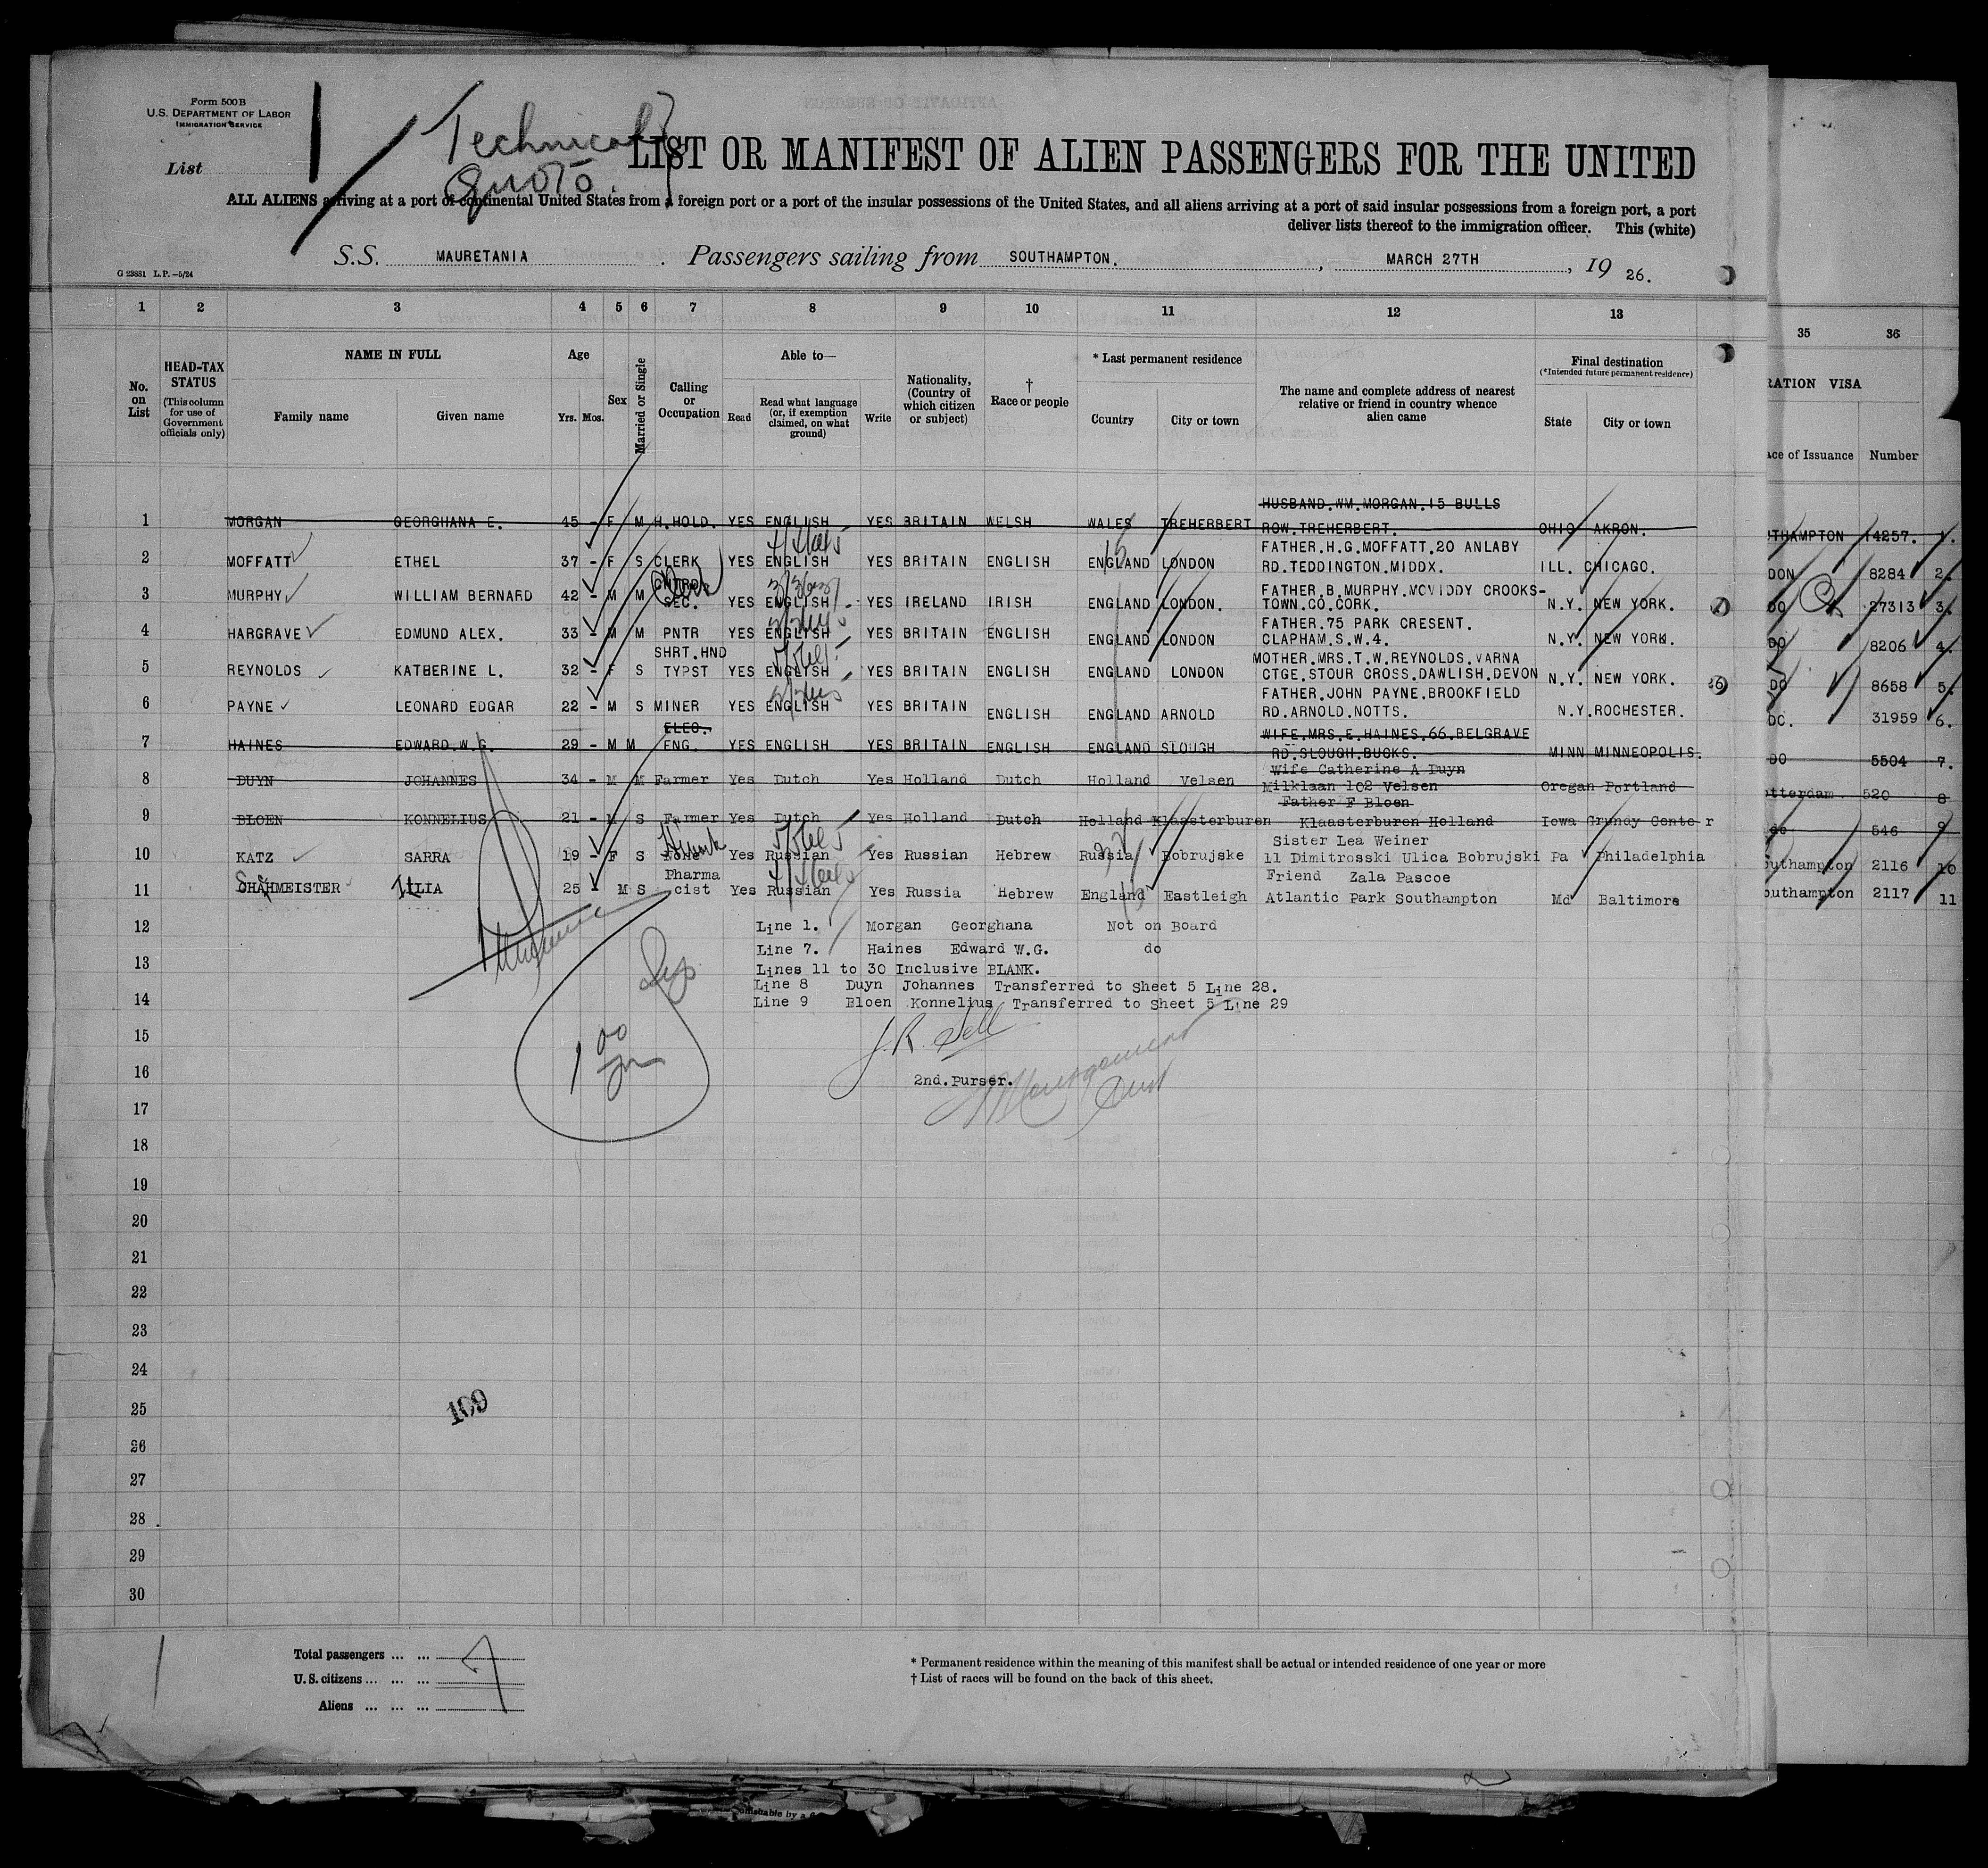 Form 500 B
U.S. DEPARTMENT OF LABOR
IMMIGRATION SERVICE
List 1
Technical
LIST OR MANIFEST OF ALIEN PASSENGERS FOR THE UNITED
ALL ALIENS arriving at a port of continental United States from a foreign port or a port of the insular possessions of the United States, and all aliens arriving at a port of said insular possessions from a foreign port, a port
deliver lists thereof to the immigration officer. This (white)
S.S. MAURETANIA . Passengers sailing from SOUTHAMPTON. , MARCH 27TH , 19 26.
G 23881 L.P.—5/24
1 2 3 4 5 6 7 8 9 10 11 12 13 35 36
No. on List
HEAD-TAX STATUS (This column for use of Government officials only)
NAME IN FULL Family name Given name
Age Yrs. Mos.
Sex
Married or Single
Calling or Occupation
Able to— Read Read what language (or, if exemption claimed, on what ground) Write
Nationality, (Country of which citizen or subject)
† Race or people
* Last permanent residence Country City or town
The name and complete address of nearest relative or friend in country whence alien came
Final destination (*Intended future permanent residence) State City or town
RATION VISA
ace of Issuance Number
HUSBAND.WM.MORGAN.15 BULLS
1 MORGAN GEORGHANA E. 45 - F M H.HOLD. YES ENGLISH YES BRITAIN WELSH WALES TREHERBERT ROW.TREHERBERT. OHIO AKRON. THAMPTON 14257. 1.
FATHER.H.G.MOFFATT.20 ANLABY
2 MOFFATT ETHEL 37 - F S CLERK YES ENGLISH YES BRITAIN ENGLISH ENGLAND LONDON RD.TEDDINGTON.MIDDX. ILL. CHICAGO. DON 8284 2.
FATHER.B.MURPHY.MCVIDDY CROOKS-
3 MURPHY WILLIAM BERNARD 42 - M M SEC. YES ENGLISH YES IRELAND IRISH ENGLAND LONDON. TOWN.CO.CORK. N.Y. NEW YORK. DO 27313 3.
FATHER.75 PARK CRESENT.
4 HARGRAVE EDMUND ALEX. 33 - M M PNTR YES ENGLISH YES BRITAIN ENGLISH ENGLAND LONDON CLAPHAM.S.W.4. N.Y. NEW YORK. DO 8206 4.
SHRT.HND MOTHER.MRS.T.W.REYNOLDS.VARNA
5 REYNOLDS KATHERINE L. 32 - F S TYPST YES ENGLISH YES BRITAIN ENGLISH ENGLAND LONDON CTGE.STOUR CROSS.DAWLISH.DEVON N.Y. NEW YORK. DO 8658 5.
FATHER.JOHN PAYNE.BROOKFIELD
6 PAYNE LEONARD EDGAR 22 - M S MINER YES ENGLISH YES BRITAIN ENGLISH ENGLAND ARNOLD RD.ARNOLD.NOTTS. N.Y. ROCHESTER. DO. 31959 6.
ELEC. WIFE.MRS.E.HAINES.66.BELGRAVE
7 HAINES EDWARD.W.G. 29 - M M ENG. YES ENGLISH YES BRITAIN ENGLISH ENGLAND SLOUGH RD.SLOUGH.BUCKS. MINN MINNEOPOLIS. DO 5504 7.
Wife Catherine A Duyn
8 DUYN JOHANNES 34 - M M Farmer Yes Dutch Yes Holland Dutch Holland Velsen Milklaan 102 Velsen Oregan Portland otterdam 520 8
Father F Bloen
9 BLOEN KONNELIUS 21 - M S Farmer Yes Dutch Yes Holland Dutch Holland Klaasterburen Klaasterburen Holland Iowa Grundy Center do 546 9
Sister Lea Weiner
10 KATZ SARRA 19 - F S None Yes Russian Yes Russian Hebrew Russia Bobrujske 11 Dimitrosski Ulica Bobrujski Pa Philadelphia outhampton 2116 10
Pharma Friend Zala Pascoe
11 CHAHMEISTER ILIA 25 - M S cist Yes Russian Yes Russia Hebrew England Eastleigh Atlantic Park Southampton Md Baltimore outhampton 2117 11
12 Line 1. Morgan Georghana Not on Board
Line 7. Haines Edward W.G. do
13 Lines 11 to 30 Inclusive BLANK.
Line 8 Duyn Johannes Transferred to Sheet 5 Line 28.
14 Line 9 Bloen Konnelius Transferred to Sheet 5 Line 29
15 J.R. Sell
16 2nd.Purser.
17
18
19
20
21
22
23
24
25 109
26
27
28
29
30
Total passengers ... ...
U.S. citizens ... ... ...
Aliens ... ... ...
7
* Permanent residence within the meaning of this manifest shall be actual or intended residence of one year or more
† List of races will be found on the back of this sheet.